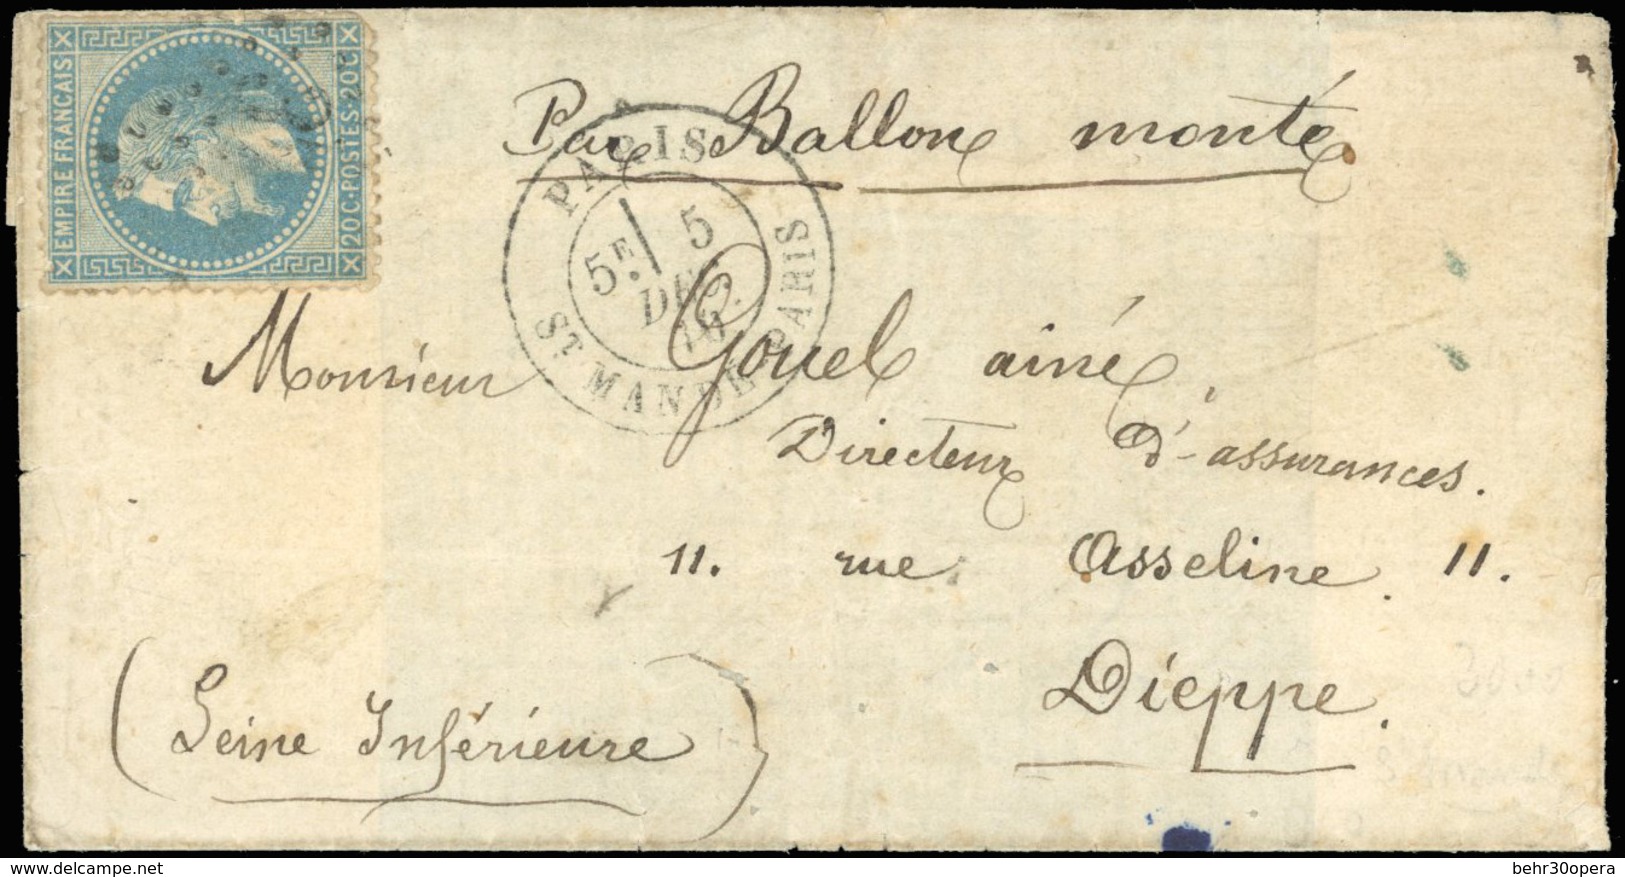 EMPIRE FRANCAIS
20 C·POSTES·20 C
Par Ballon monté
PARIS
5E 5
DEC.
70
ST MANDE PARIS
Monsieur Gouel ainé,
Directeur d'assurances.
11. rue Asseline. 11.
Dieppe.
(Seine Inférieure)
3000
behr30opera